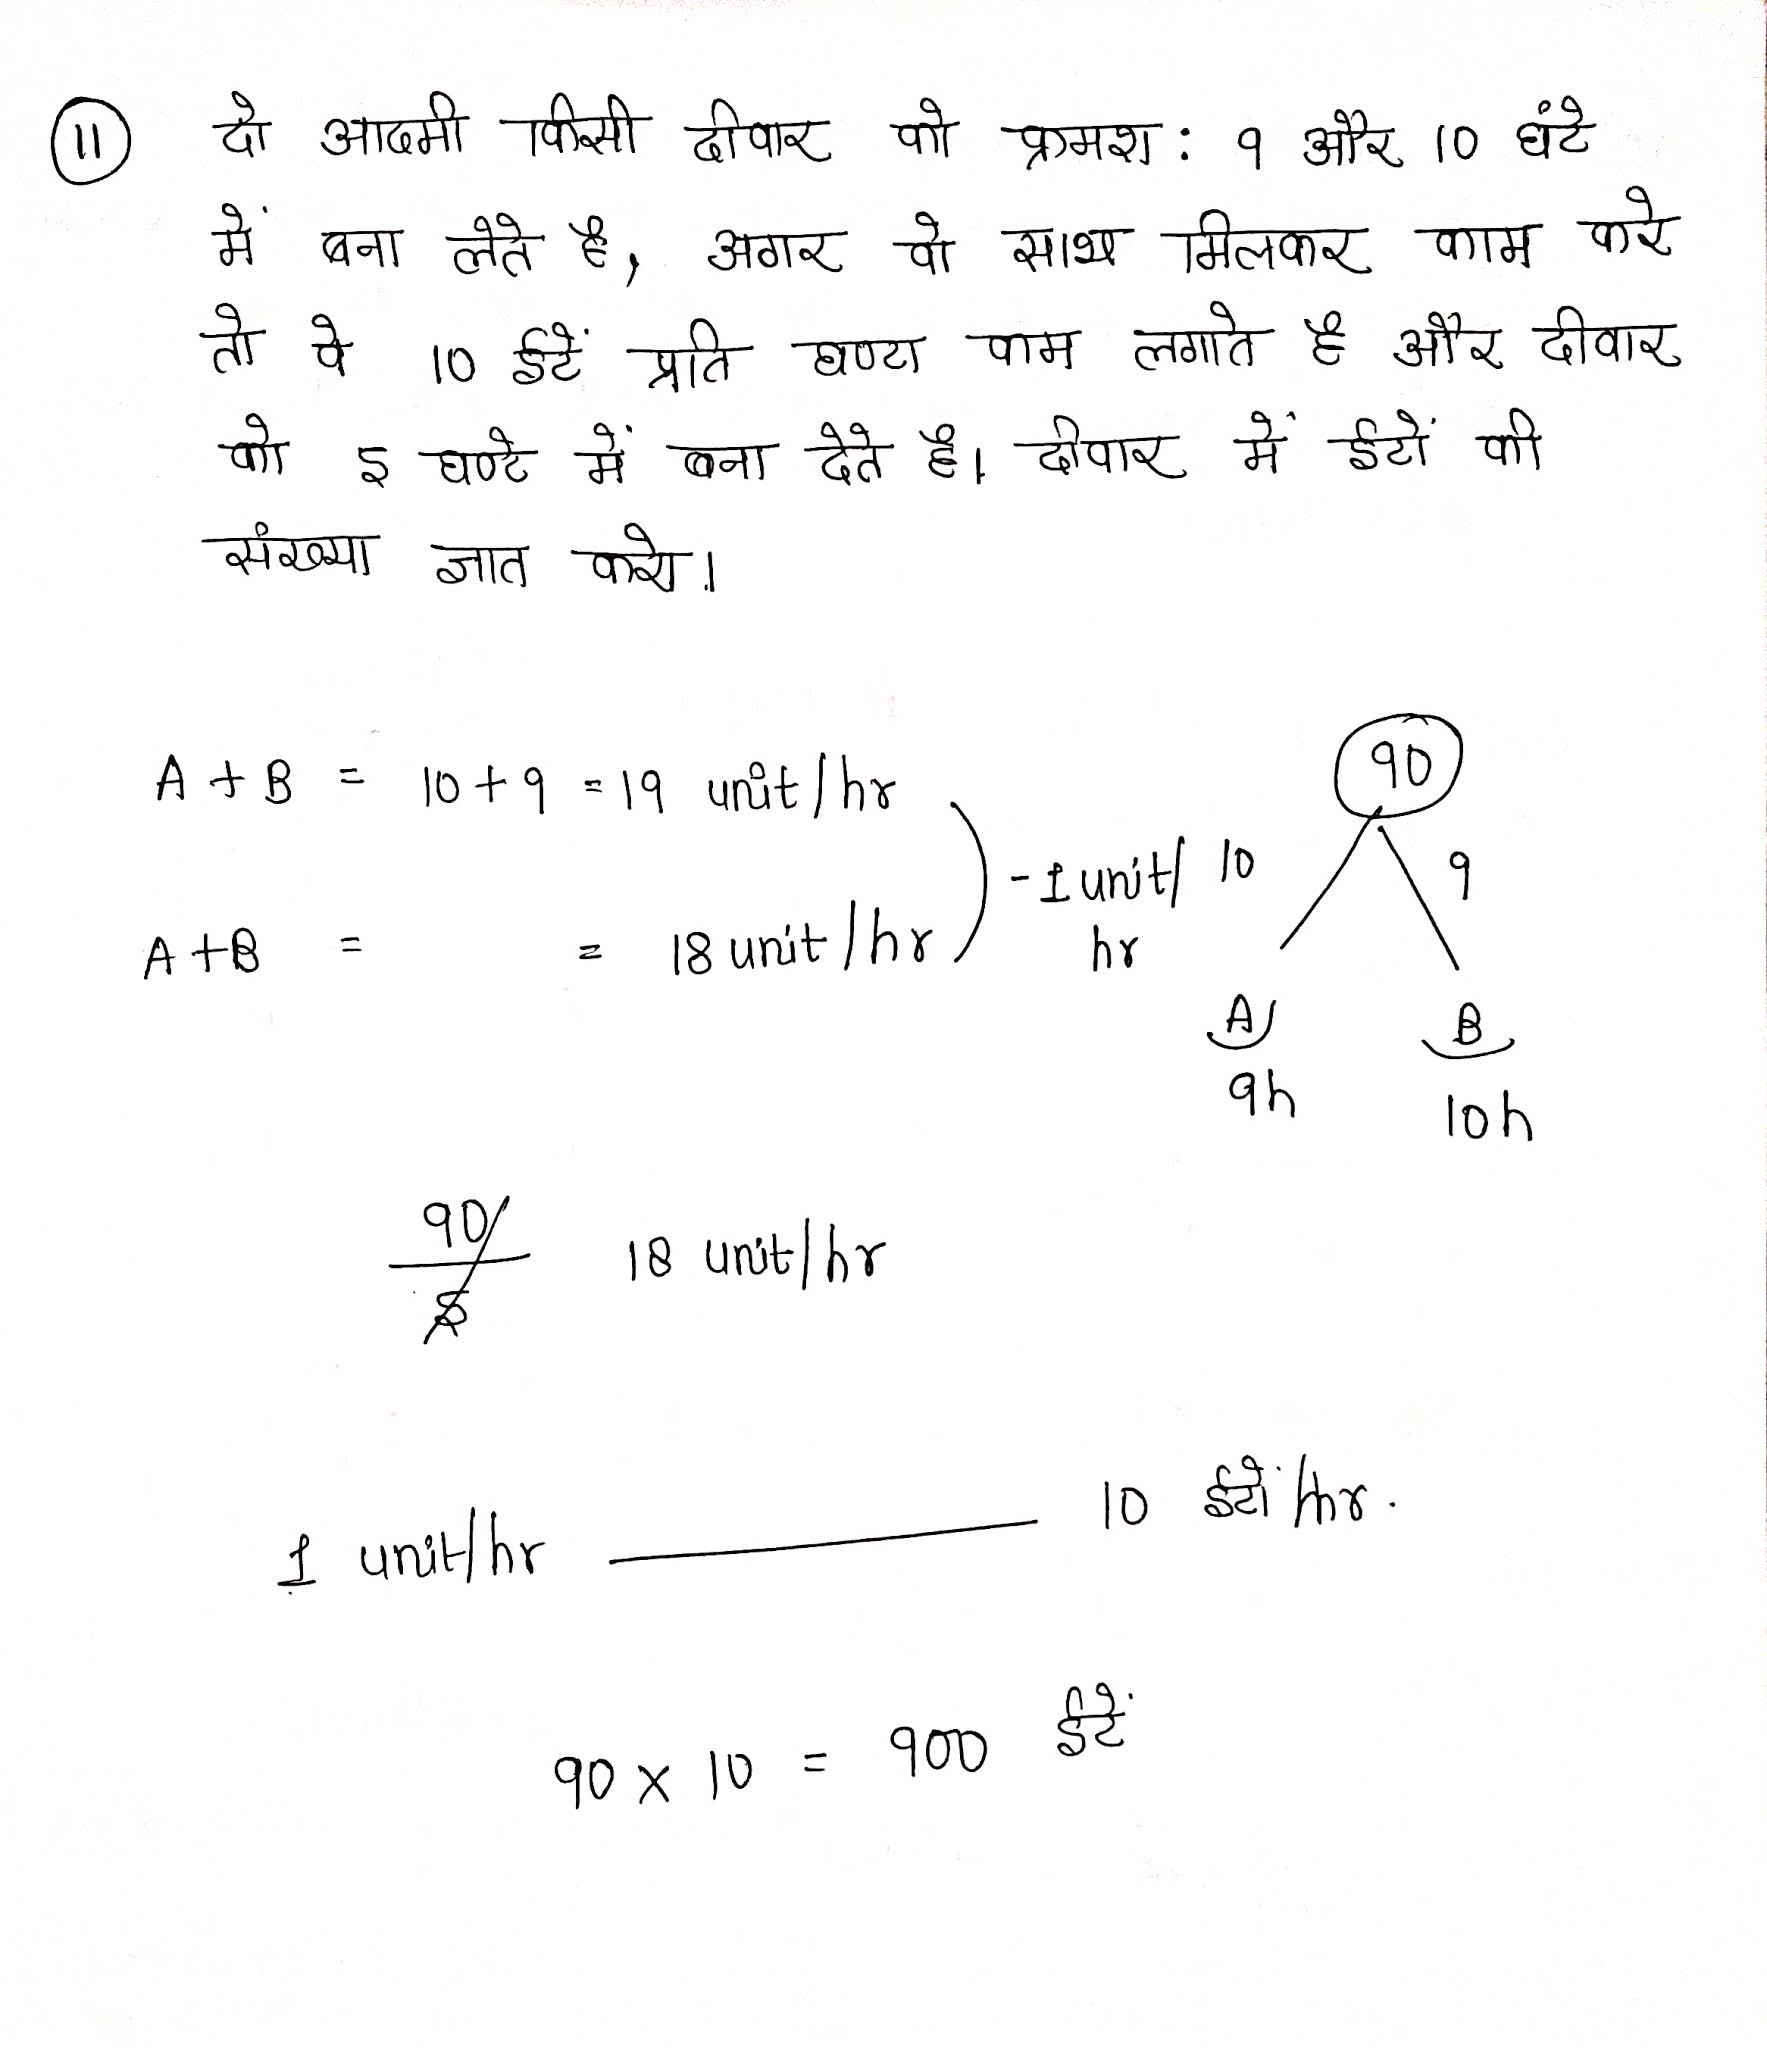 11 दो आदमी किसी दीवार को क्रमश: 9 और 10 घंटे
में बना लेते है, अगर वो साथ मिलकर काम करे
तो वे 10 ईटें प्रति घण्टा काम लगाते है और दीवार
को 5 घण्टे में बना देते है। दीवार में ईटों की
संख्या ज्ञात करो।
90
A + B = 10 + 9 = 19 unit/hr
- 1 unit/ 10 9
A + B = = 18 unit/hr hr
A B
9h 10h
90/5 18 unit/hr
1 unit/hr 10 ईटों/hr.
90 x 10 = 900 ईटें